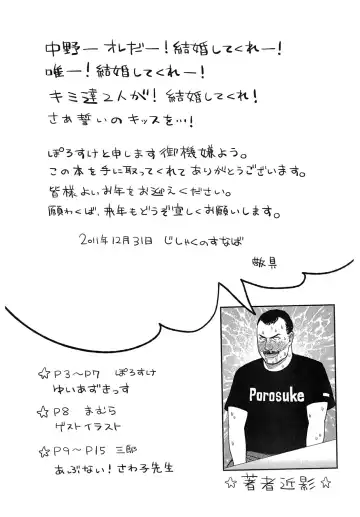 中野ーオレだー！結婚してくれー！
唯ー！結婚してくれー！
キミ達2人が！結婚してくれ！
さあ誓いのキッスを…！
ぽろすけと申します御機嫌よう。
この本を手に取ってくれてありがとうございます。
皆様よいお年をお迎えください。
願わくば、来年もどうぞ宜しくお願いします。
2011年12月31日 じしゃくのすなば
敬具
☆P3〜P7 ぽろすけ
ゆいあずきっす
☆P8 まむら
ゲストイラスト
☆P9〜P15 三郎
あぶない！さわ子先生
Porosuke
☆著者近影☆